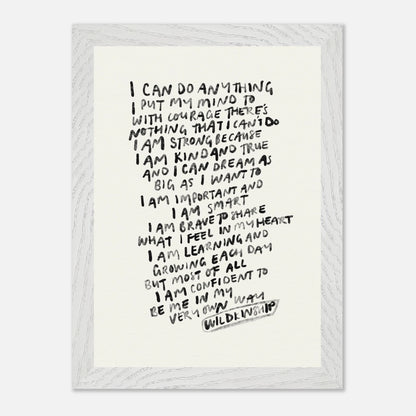 I CAN DO ANYTHING
I PUT MY MIND TO
WITH COURAGE THERE'S
NOTHING THAT I CAN'T DO
I AM STRONG BECAUSE
I AM KIND AND TRUE
AND I CAN DREAM AS
BIG AS I WANT TO
I AM IMPORTANT AND
I AM SMART
I AM BRAVE TO SHARE
WHAT I FEEL IN MY HEART
I AM LEARNING AND
GROWING EACH DAY
BUT MOST OF ALL
I AM CONFIDENT TO
BE ME IN MY
VERY OWN WAY
WILDKINSHIP